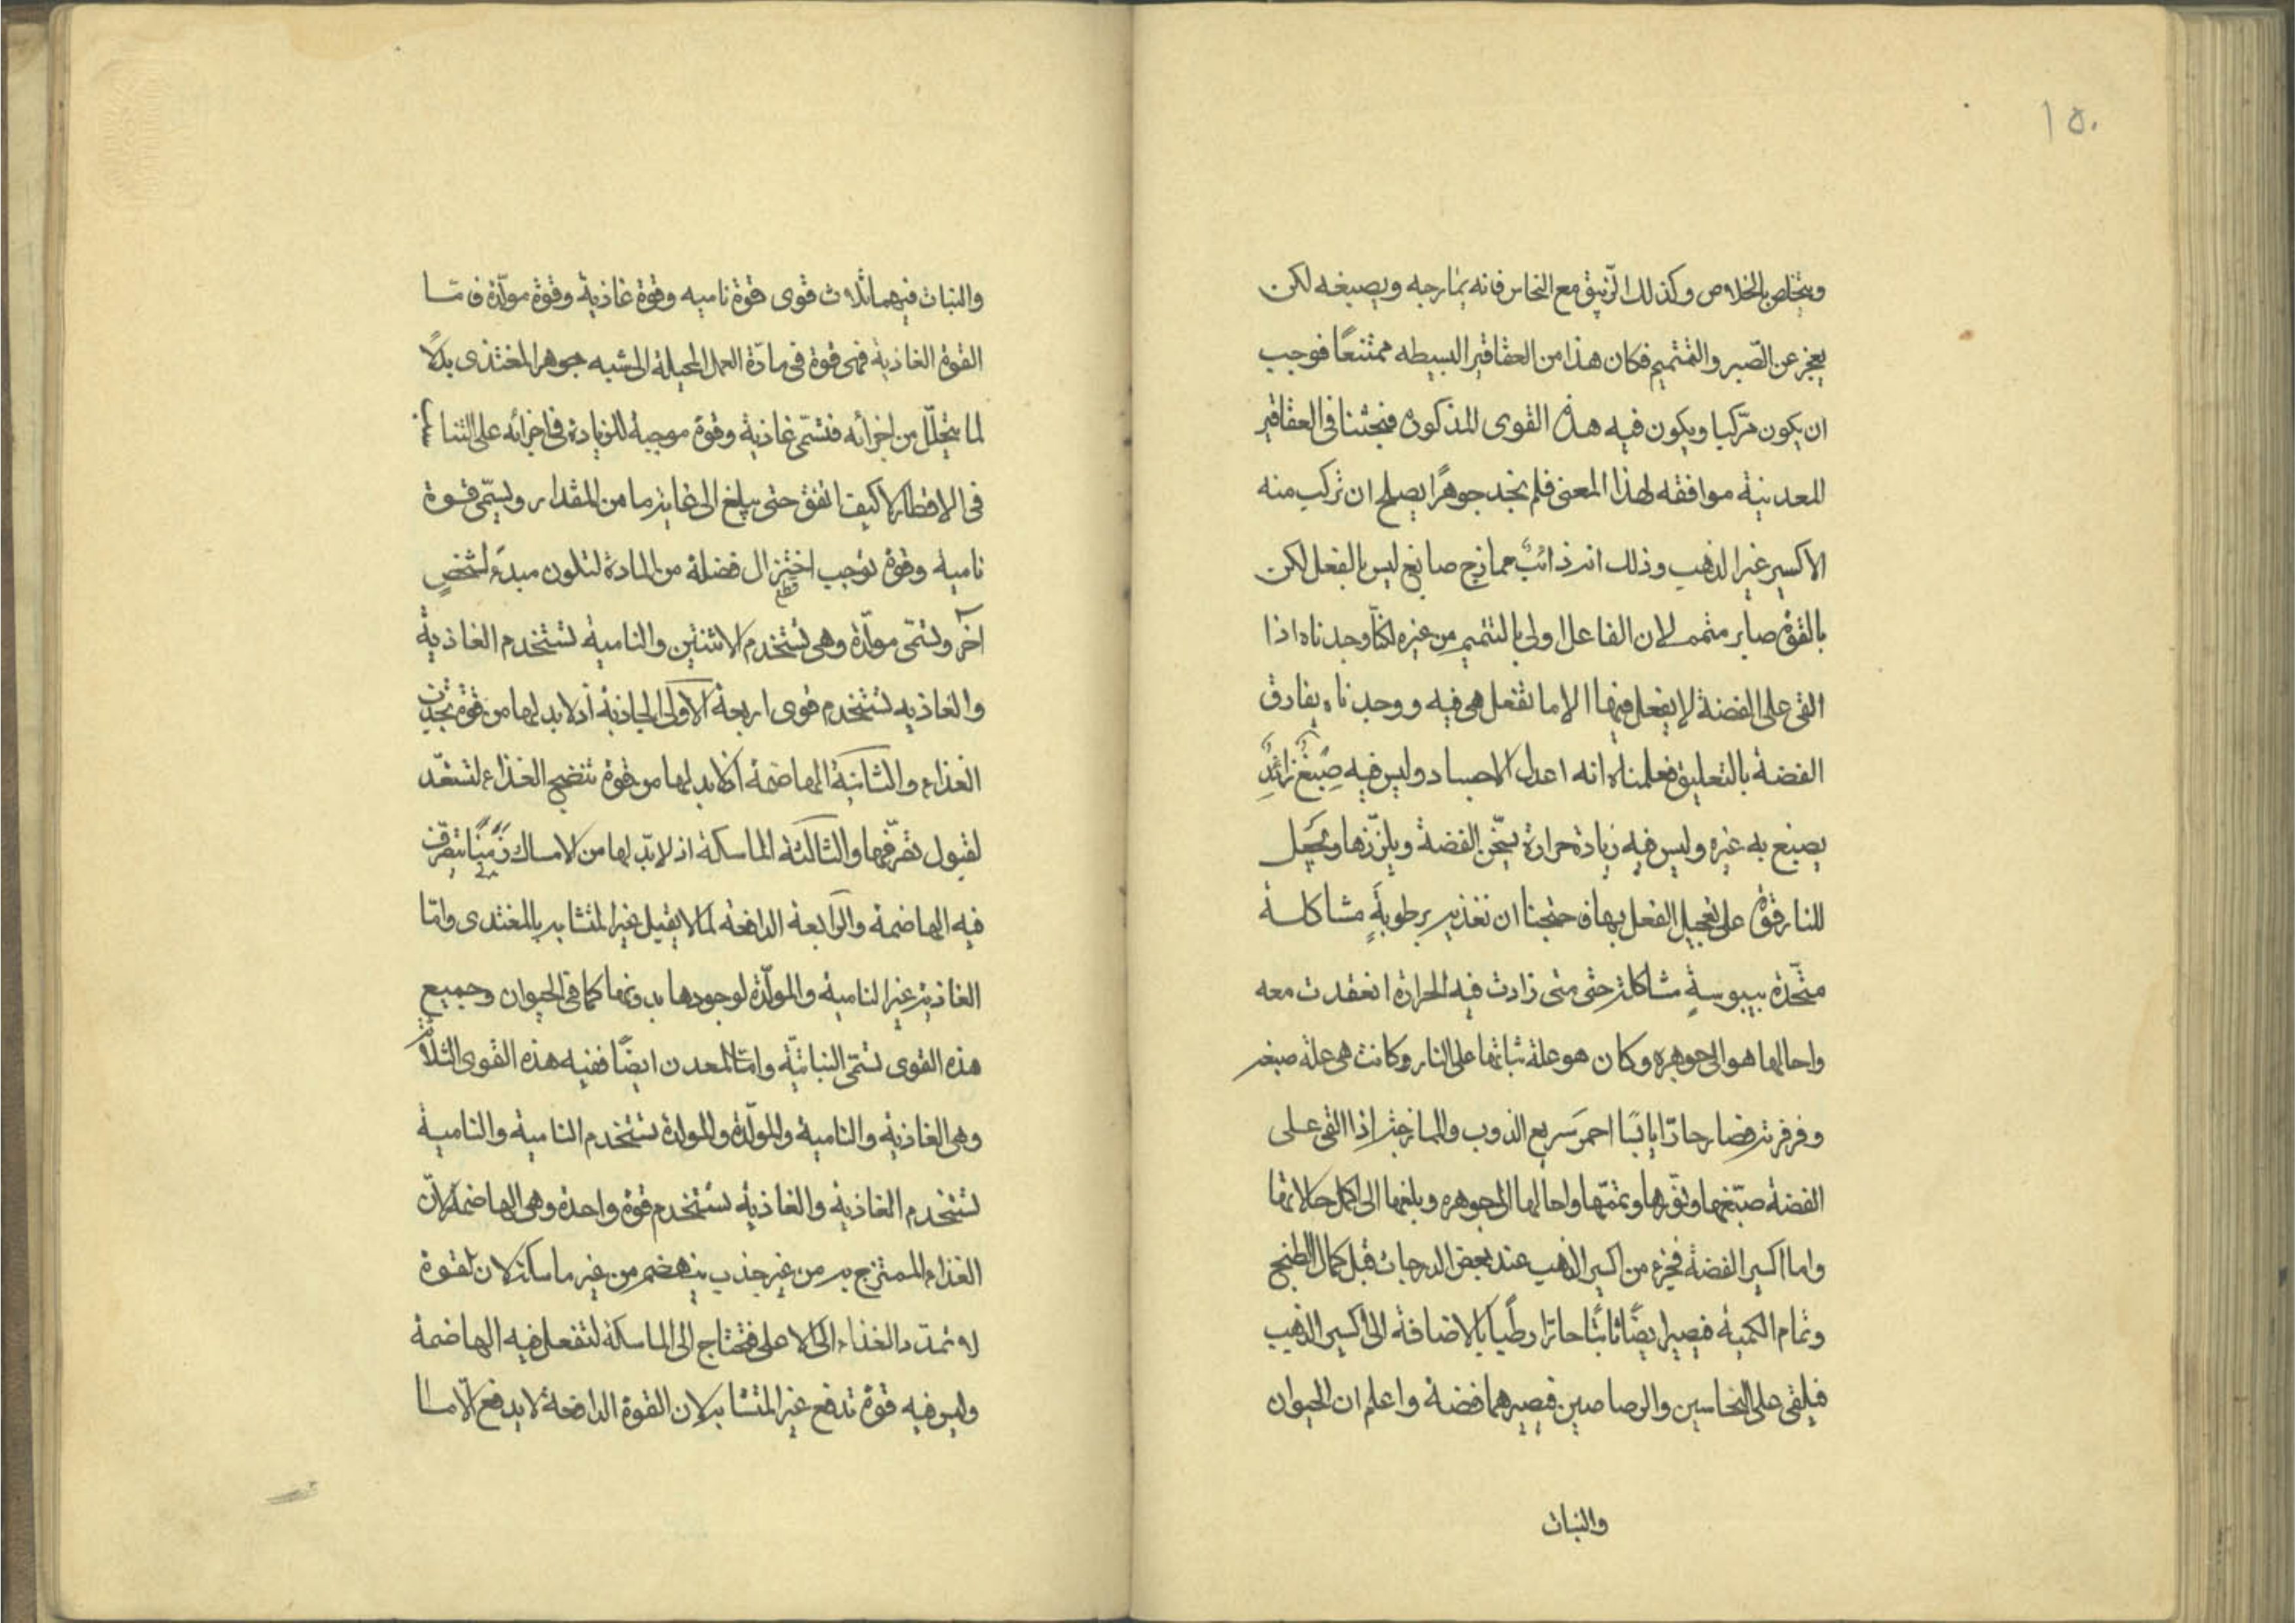 ١٥٠
ويتخلص بالخلاص وكذلك الزيبق مع النحاس فانه يمازجه ويصبغه لكن
يعجز عن الصبر والتتميم فكان هذا من العقاقير البسيطه ممتنعًا فوجب
ان يكون مركبا ويكون فيه هذه القوى المذكوره فبحثنا في العقاقير
المعدنية موافقه لهذا المعنى فلم نجد جوهرًا يصلح ان تركب منه
الاكسير غير الذهب وذلك انه ذائبٌ ممازج صابغ ليس بالفعل لكن
بالقوة صابر متمم لان الفاعل اولى بالتتميم من غيره لكنّا وجدناه اذا
القى على الفضة لا يفعل فيها الا ما تفعل هي فيه ووجدناه يفارق
الفضة بالتعليق فعلمناه انه اعدل الاجساد وليس فيه صبغٌ زائدٌ
يصبغ به غيره وليس فيه زيادة حرارة يسخّن الفضة ويلزّزها ويجعل
للنار قوة على تعجيل الفعل بها فاحتجنا ان نغذيه برطوبةٍ مشاكلة
متّحدة بيبوسةٍ مشاكلة حتى متى زادت فيه الحرارة انعقدت معه
واحالها هو الى جوهره وكان هو علة ثباتها على النار وكانت هي علة صبغه
وفرفرته فصار حارّا يابسًا احمر سريع الذوب والممازجة اذا القى على
الفضة صبّغها ونوّرها وتممّها واحالها الى جوهره وبلغها الى اكمل حالاتها
واما اكسير الفضة فجزء من اكسير الذهب عند بعض الدرجات قبل كمال الطبخ
وتمام الكمية فيصير ابيضًا ثابتًا حارّا رطبًا بالاضافة الى اكسير الذهب
فيلقى على النحاسين والرصاصين فيصيرهما فضة واعلم ان الحيوان
والنبات
والنبات فيهما ثلاث قوى قوة ناميه وقوة غاذية وقوة مولّدة فامّا
القوة الغاذية فهى قوة فى مادّة العمل المحيلة الى شبه جوهر المغتذى بدلًا
لما يتحلّل من اجزائه فتسمّى غاذية وقوة موجبة للزيادة فى اجزائه على التناسب
فى الاقطار لا كيف اتفق حتى يبلغ الى غاية ما من المقدار ويسمّى قوة
نامية وقوة توجب اختزال فضلة من المادة لتكون مبدء لشخصٍ
قطع
آخر وتسمّى مولّدة وهى تستخدم الاثنتين والنامية تستخدم الغاذية
والغاذيه تستخدم قوى اربعة الاولى الجاذبة اذ لا بد لها من قوة تجذب
الغذاء والثانية الهاضمة اذ لابد لها من قوة تنضج الغذاء لتستعّد
لقبول تصرّفها والثالثة الماسكة اذ لا بدّ لها من الامساك زمنًا يتصرّف
فيه الهاضمة والرّابعة الدافعه لما لا يقبل غير المتشابه بالمغتدى وامّا
الغاذية غير النامية والمولّدة لوجودها بدونهما كما فى الحيوان وجميع
هذه القوى تسمّى النباتيّة وامّا المعدن ايضًا ففيه هذه القوى الثلاثة
وهى الغاذية والنامية والمولّدة والمولدة تستخدم النامية والنامية
تستخدم الغاذية والغاذية تستخدم قوة واحدة وهى الهاضمة لانّ
الغذاء الممتزج به من غير جذب ينهضم من غير ماسكة لان لقوة
له تمدّد الغذاء الى الاعلى فتحتاج الى الماسكة لتفعل فيه الهاضمة
وليس فيه قوة تدفع غير المتشابه لان القوة الدافعة لا يدفع الّا ما